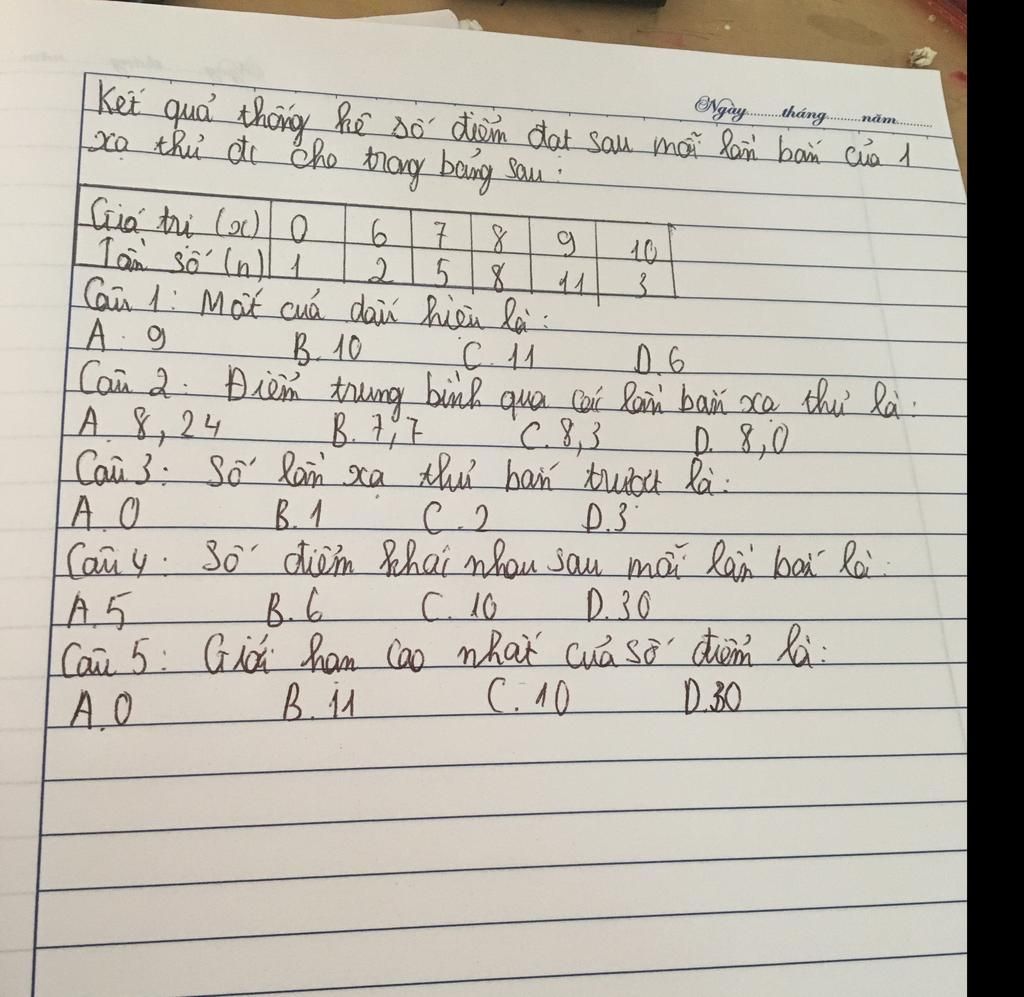 Ngày.........tháng.........năm.........
Kết quả thống kê số điểm đạt sau mỗi lần bắn của 1
xạ thủ đc cho trong bảng sau:
Giá trị (x) 0 6 7 8 9 10
Tần số (n) 1 2 5 8 11 3
Câu 1: Mốt của dấu hiệu là:
A. 9 B. 10 C. 11 D. 6
Câu 2. Điểm trung bình qua các lần bắn xạ thủ là:
A. 8,24 B. 7,7 C. 8,3 D. 8,0
Câu 3: Số lần xạ thủ bắn trượt là:
A. 0 B. 1 C. 2 D. 3
Câu 4: Số điểm khác nhau sau mỗi lần bắn là:
A. 5 B. 6 C. 10 D. 30
Câu 5: Giới hạn cao nhất của số điểm là:
A. 0 B. 11 C. 10 D. 30